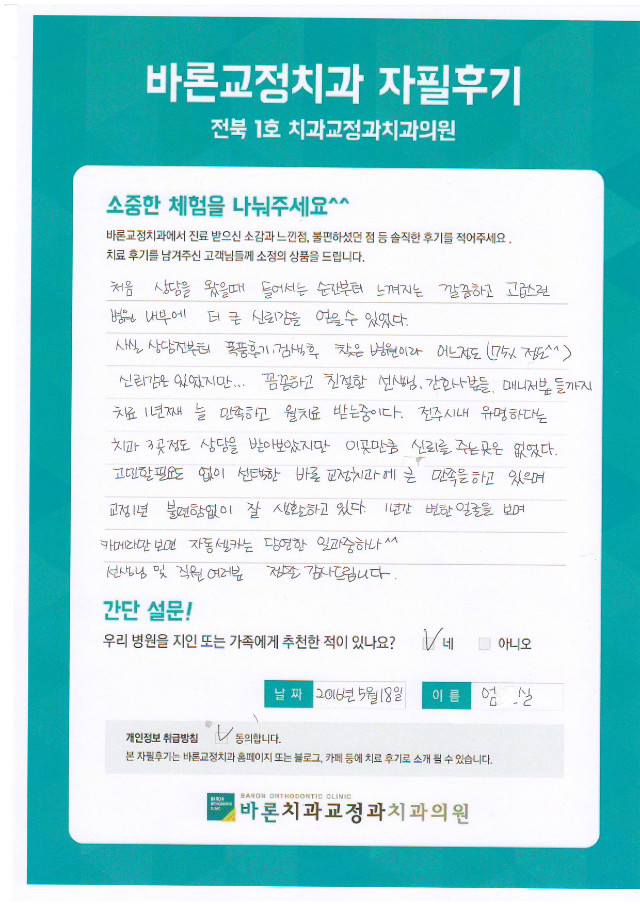 바론교정치과 자필후기
전북 1호 치과교정과치과의원
소중한 체험을 나눠주세요^^
바론교정치과에서 진료 받으신 소감과 느낀점, 불편하셨던 점 등 솔직한 후기를 적어주세요.
치료 후기를 남겨주신 고객님들께 소정의 상품을 드립니다.
처음 상담을 왔을때 들어서는 순간부터 느껴지는 깔끔하고 고급스런
병원 내부에 더 큰 신뢰감을 얻을수 있었다.
사실 상담전부터 폭풍후기 검색후 찾은 병원이라 어느정도 (175% 정도^^)
신뢰감은 있었지만... 꼼꼼하고 친절한 선생님, 간호사분들, 매니저분들까지
치료 1년째 늘 만족하고 월치료 받는중이다. 전주시내 유명하다는
치과 3곳정도 상담을 받아보았지만 이곳만큼 신뢰를 주는곳은 없었다.
고민할필요도 없이 선택한 바론교정치과에 큰 만족을하고 있으며
교정1년 불편함없이 잘 생활하고 있다. 1년간 변한 얼굴을 보며
카메라만 보면 자동셀카는 당연한 일과중하나^^
선생님 및 직원 여러분 정말 감사드립니다.
간단 설문!
우리 병원을 지인 또는 가족에게 추천한 적이 있나요? 네 아니오
날 짜 2016년 5월 18일 이 름 엄 실
개인정보 취급방침 동의합니다.
본 자필후기는 바론교정치과 홈페이지 또는 블로그, 카페 등에 치료 후기로 소개 될 수 있습니다.
BARON ORTHODONTIC CLINIC
바론치과교정과치과의원